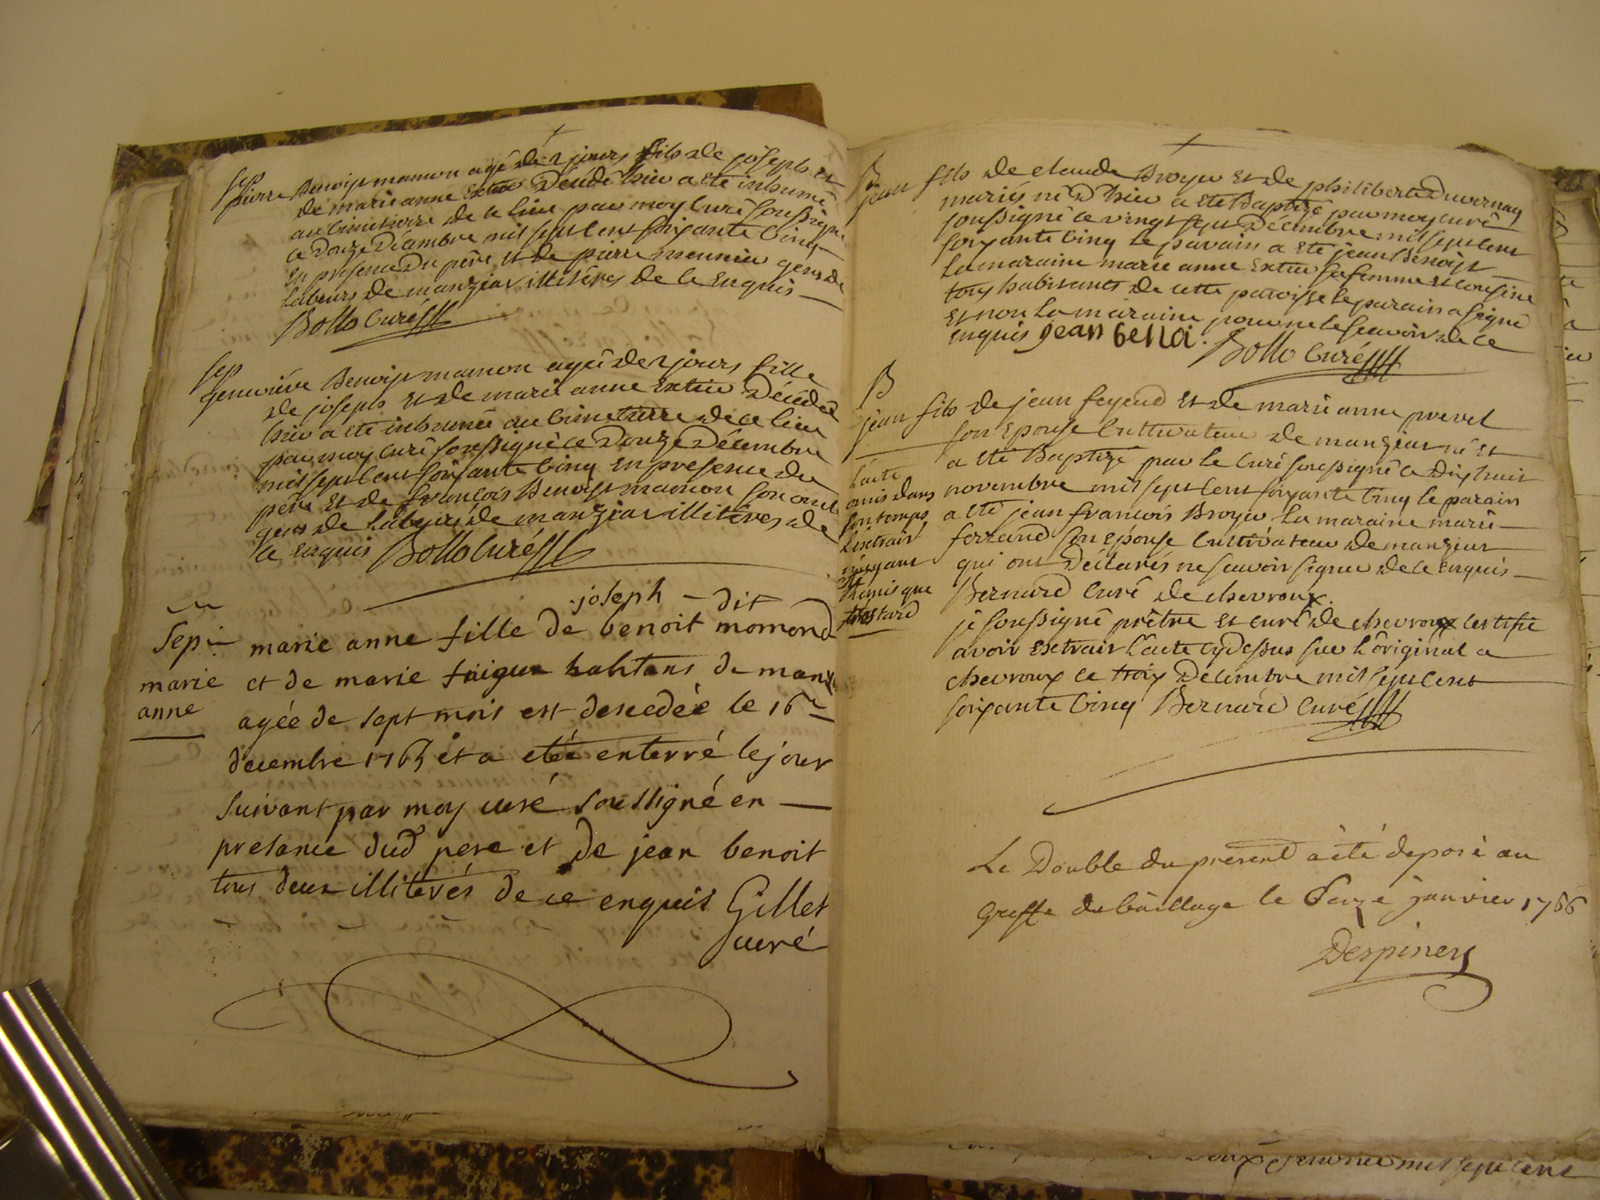 sep
pierre Benoist mamon agé de 2 jours fils de joseph et
de marie anne Extier Décédé hier a ete inhumé
au Cimetierre de ce lieu par moy Curé soussigné
ce Douze Décembre mil sept cent soixante Cinq
En presence du père et de pierre meunier gens de
labeurs de manziat illitéres de ce Enquis
Bollo Curé
sep
genevieve Benoist mamon agée de 2 jours fille
de joseph et de marie anne Extier Décédée
hier a ete inhumée au Cimetierre de ce lieu
par moy Curé soussigné ce Douze Décembre
mil sept cent soixante Cinq En presence du
père Et de françois Benoist mamon son oncle
gens de labeurs de manziat illitéres de
ce Enquis Bollo Curé
joseph - dit
Sep:
marie
anne
marie anne fille de benoit momond
et de marie faigue habitans de manz
agée de sept mois est descedée le 16
decembre 1765 et a eteé enterré le jour
suivant par moy curé soussigné en
presance dud pere et de jean benoit
tous deux illiterés de ce enquis Gillet
curé
B
jean fils de claude Broyer Et de philiberte Duvernay
mariés né D'hier a ete Baptizé par moy curé
soussigné ce vingt sept Décembre mil sept cent
soixante Cinq le parain a ete jean Benoist
la maraine marie anne Extier sa femme et cousine
tous habitants de cette paroisse le parain a signé
Et non la maraine pour ne le scavoir de ce
enquis jean benoi. Bollo Curé
B
jean fils de jean feyend Et de marie anne prevel
son Epouse Cultivateur de manzeat né et
a ete Baptizé par le Curé soussigné ce Dixhuit
novembre mil sept cent soixante Cinq le parain
a ete jean francois Broyer la maraine marie
ferrand son Epouse Cultivateur de manzeat
qui ont Déclarés ne scavoir signer de ce Enquis
Bernard Curé de chevroux.
je soussigné prêtre Et curé de chevroux certifie
avoir Extrait l'acte cy dessus sur l'original a
chevroux ce trois Décembre mil sept cent
soixante Cinq Bernard Curé
l'acte
omis dans
son temps
l'extrait
n'ayant
ete mis que
tard
Le Double du présent à été déposé au
Greffe du bailliage le janvier 1766
Despiney
mil sept cent